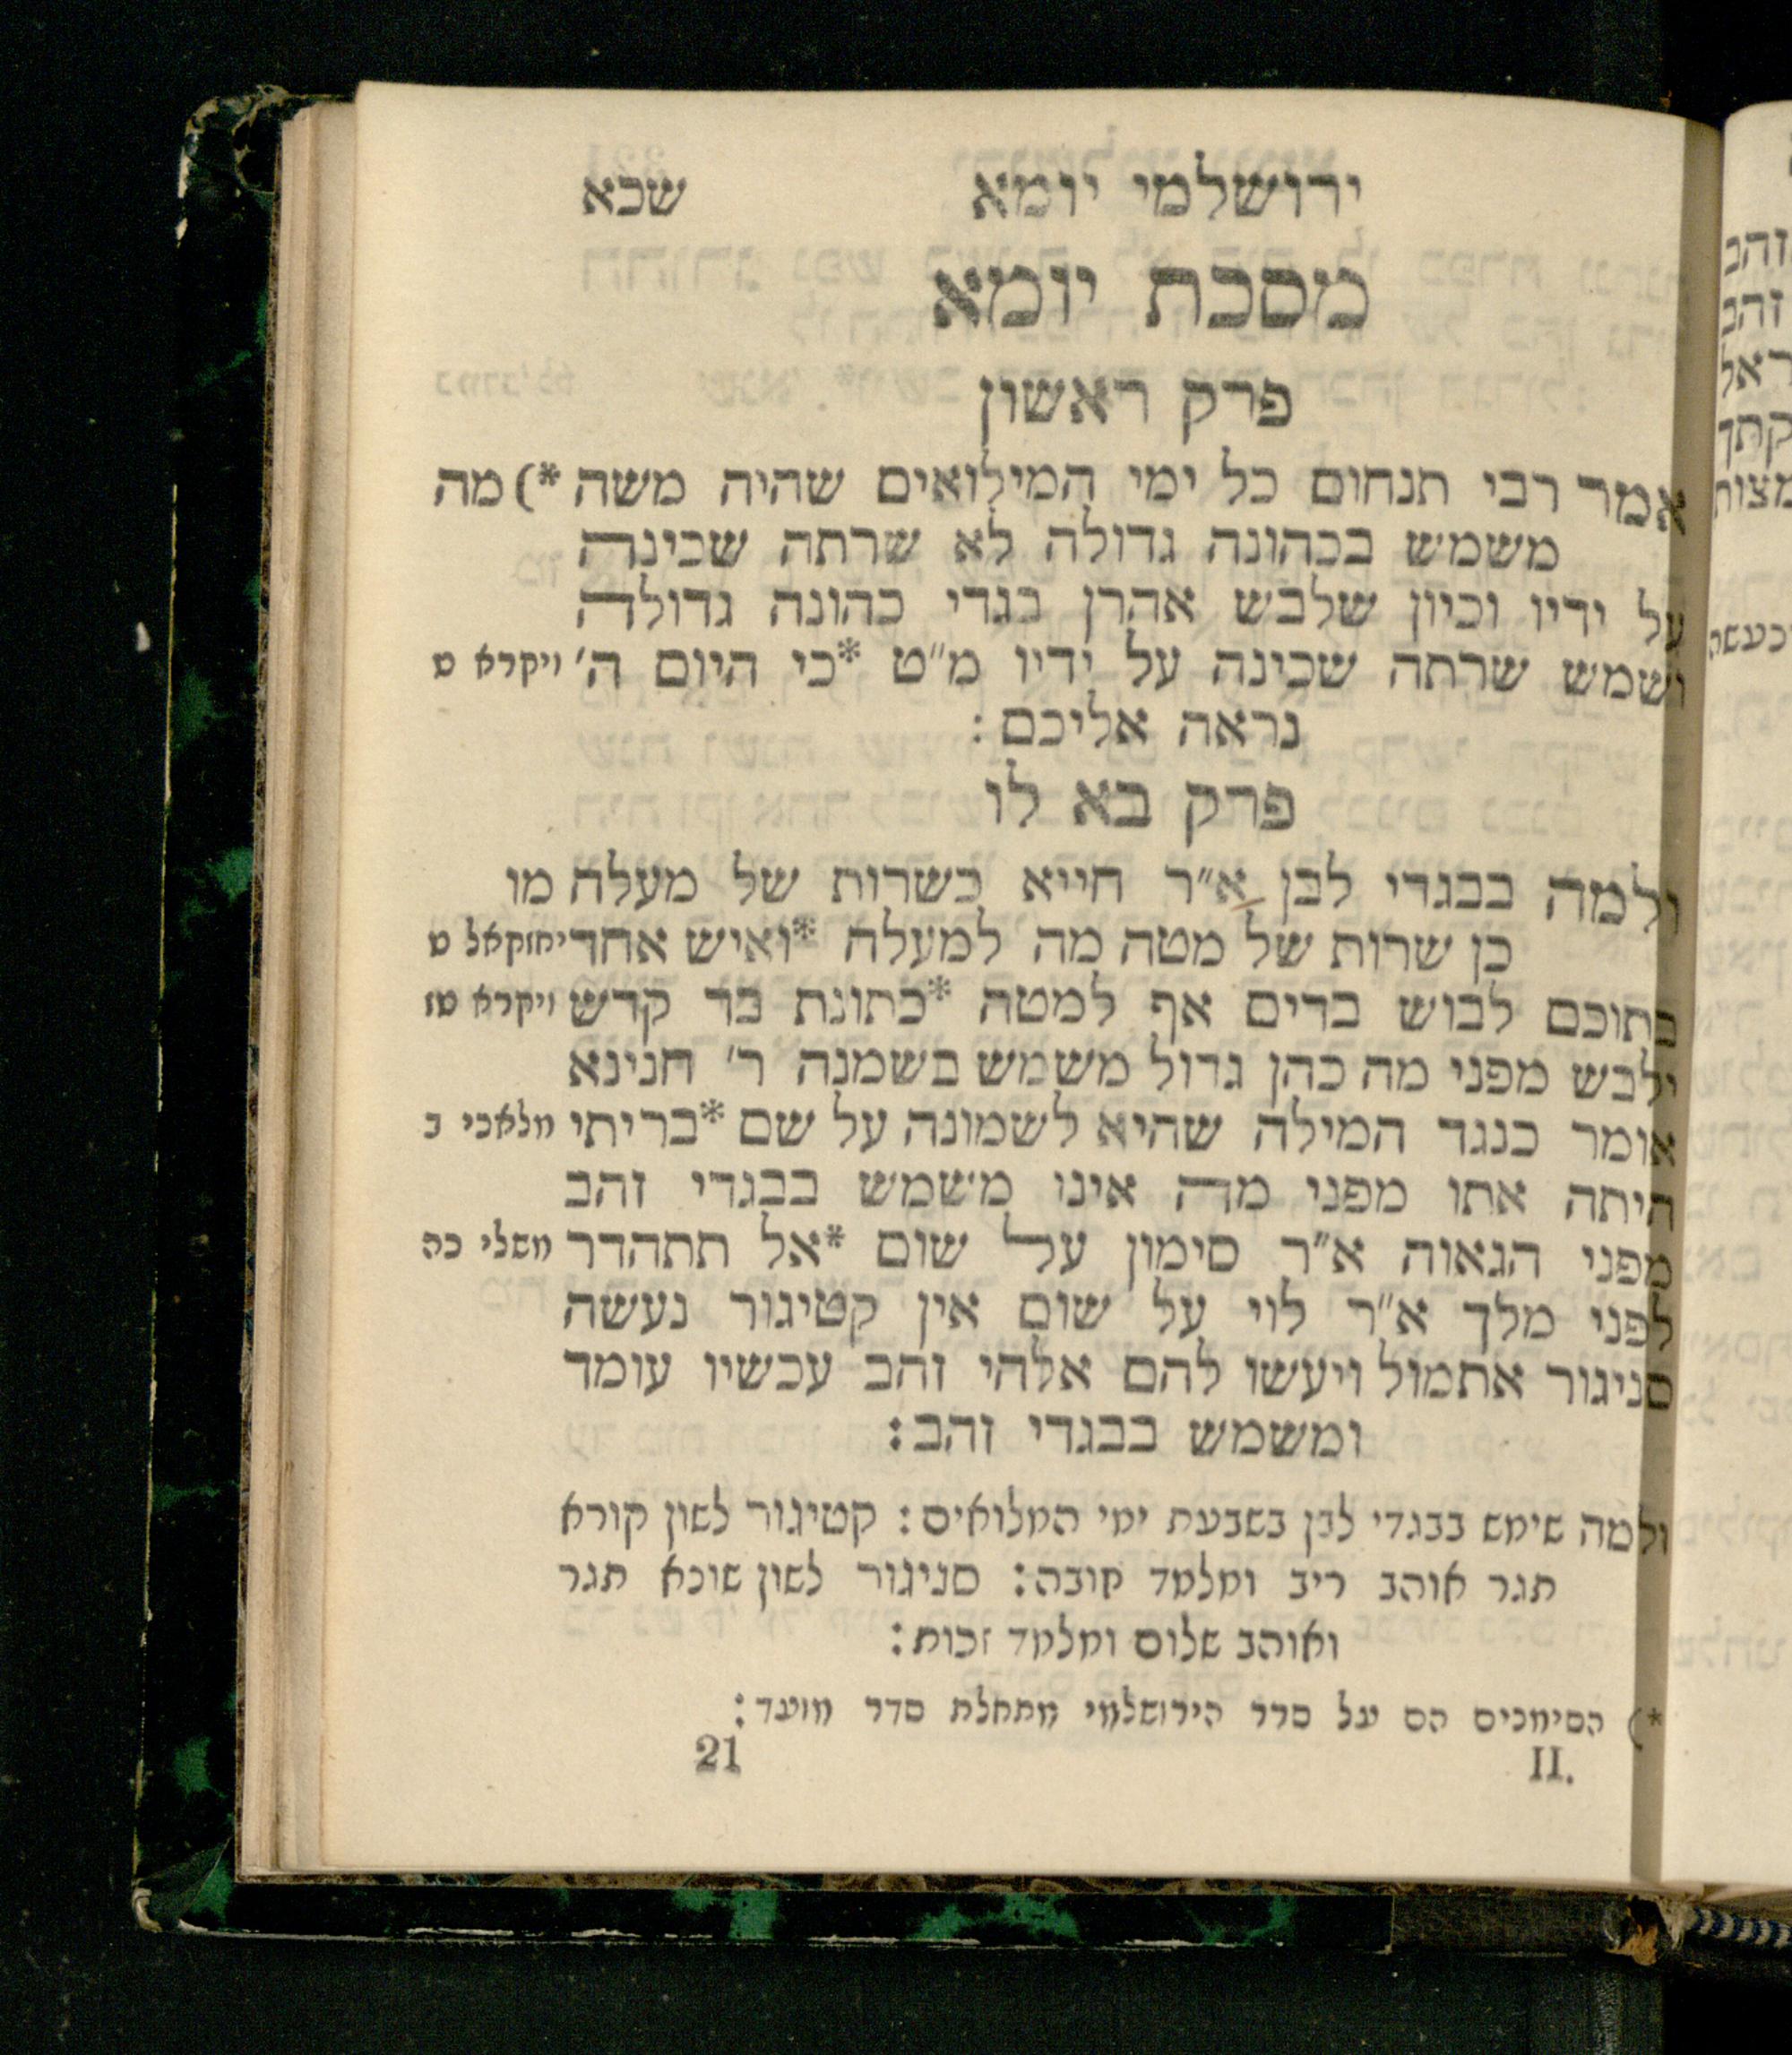 ירושלמי יומא שכא
מסכת יומא
פרק ראשון
אמר רבי תנחום כל ימי המילואים שהיה משה *) מה
משמש בכהונה גדולה לא שרתה שכינה
על ידיו וכיון שלבש אהרן בגדי כהונה גדולה
ושמש שרתה שכינה על ידיו מ״ט *כי היום ה׳ ויקרא ט
נראה אליכם :
פרק בא לו
ולמה בבגדי לבן א״ר חייא כשרות של מעלה מו
כן שרות של מטה מה למעלה *ואיש אחד יחזקאל ט
בתוכם לבוש בדים אף למטה *כתונת בד קדש ויקרא טז
ילבש מפני מה כהן גדול משמש בשמנה ר׳ חנינא
אומר כנגד המילה שהיא לשמונה על שם *בריתי מלאכי ב
היתה אתו מפני מה אינו משמש בבגדי זהב
מפני הגאוה א״ר סימון על שום *אל תתהדר משלי כה
לפני מלך א״ר לוי על שום אין קטיגור נעשה
סניגור אתמול ויעשו להם אלהי זהב עכשיו עומד
ומשמש בבגדי זהב :
ולמה שימש בבגדי לבן בשבעת ימי המלואים : קטיגור לשון קורא
תגר אוהב ריב ומלמד חובה : סניגור לשון שונא תגר
ואוהב שלום ומלמד זכות :
*) הסימנים הם על סדר הירושלמי מתחלת סדר מועד :
II. 21
זהב
זהב
קתך
מצות